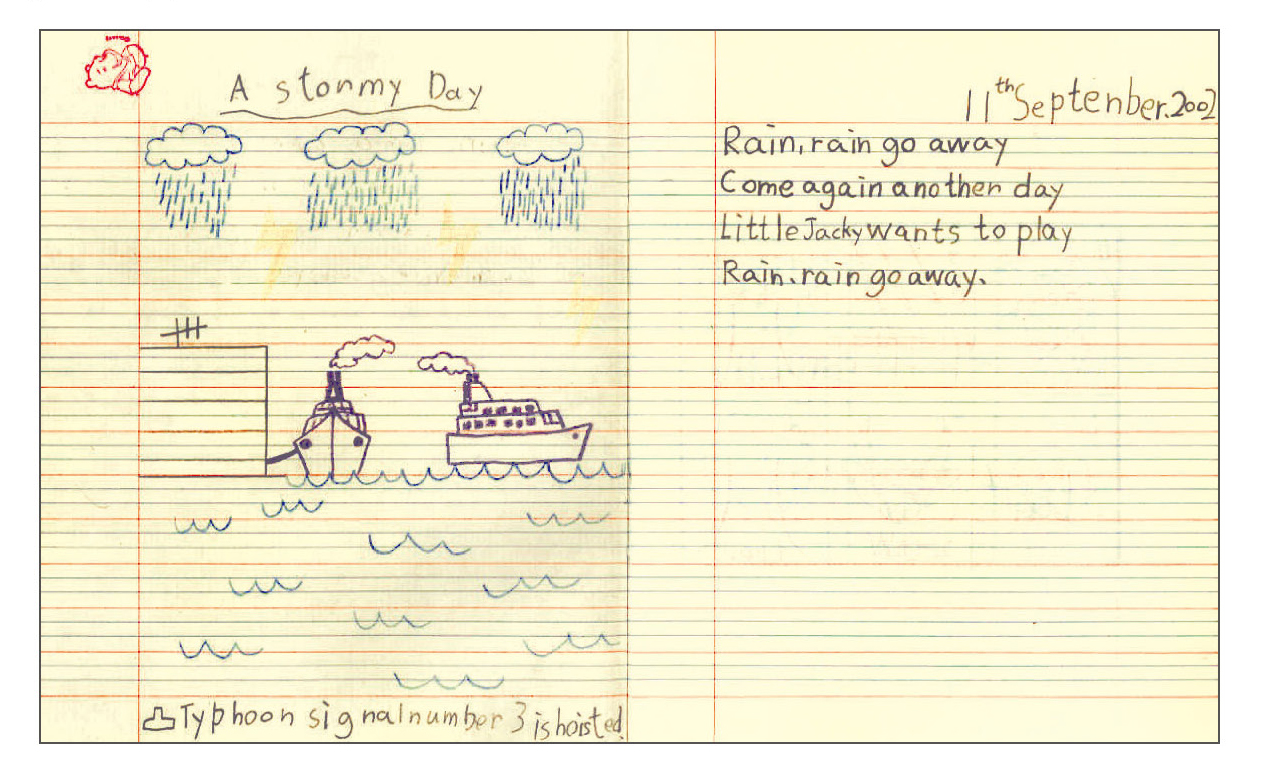 A stormy Day
Typhoon signal number 3 is hoisted.
11th Septenber.2002
Rain, rain go away
Come again another day
Little Jacky wants to play
Rain. rain go away.